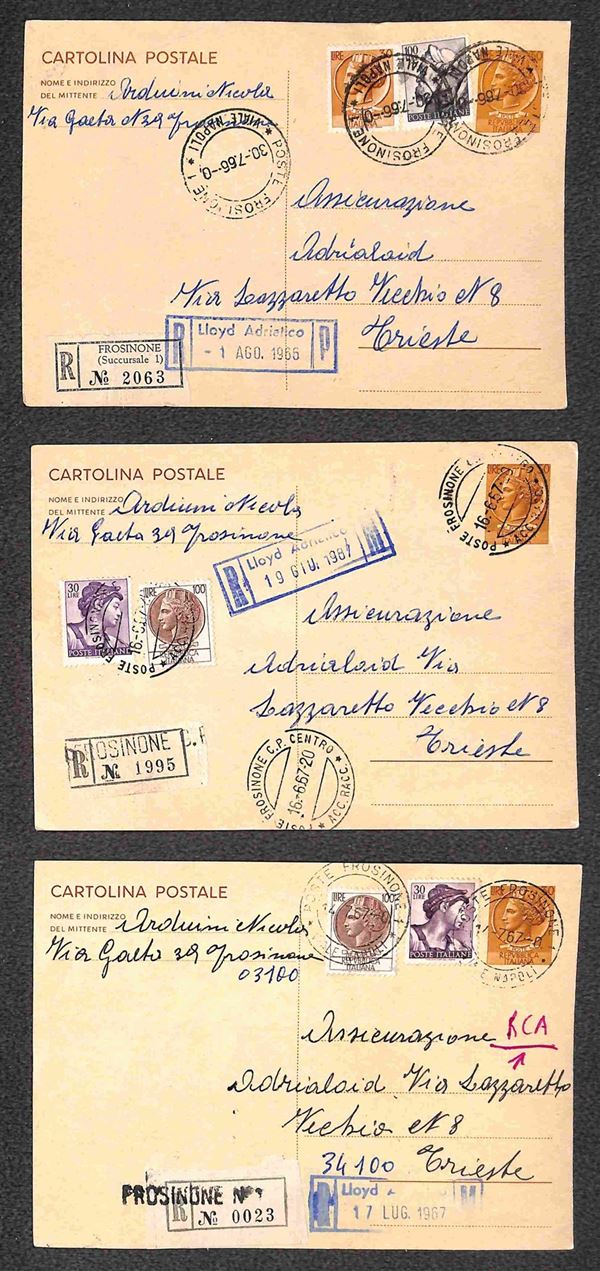 CARTOLINA POSTALE
NOME E INDIRIZZO
DEL MITTENTE
Arduini Nicola
Via Gaeta N 39 Frosinone
LIRE 30
100
POSTE FROSINONE 1
* VIALE NAPOLI *
30.-7.66-0
Assicurazione
Adrialoid
Via Lazzaretto Vecchio N 8
Trieste
R Lloyd Adriatico P
- 1 AGO. 1966
R
FROSINONE
(Succursale 1)
№ 2063
CARTOLINA POSTALE
NOME E INDIRIZZO
DEL MITTENTE
Arduini Nicola
Via Gaeta 39 Frosinone
POSTE FROSINONE C.P. CENTRO
16-6.67-20
R Lloyd Adriatico M
19 GIU. 1967
30 LIRE
POSTE ITALIANE
LIRE 100
ITALIANA
Assicurazione
Adrialoid Via
Lazzaretto Vecchio N 8
Trieste
FROSINONE C.P.
R № 1995
POSTE FROSINONE C.P. CENTRO
* ACC. RACC. *
16-6.67-20
CARTOLINA POSTALE
NOME E INDIRIZZO
DEL MITTENTE
Arduini Nicola
Via Gaeta 39 Frosinone
03100
LIRE 100
REPUBBLICA
ITALIANA
30 LIRE
POSTE ITALIANE
30
REPUBBLICA
ITALIANA
POSTE FROSINONE
Assicurazione RCA
Adrialoid Via Lazzaretto
Vecchio N 8
34100 Trieste
FROSINONE N° 1
R № 0023
R Lloyd M
17 LUG. 1967